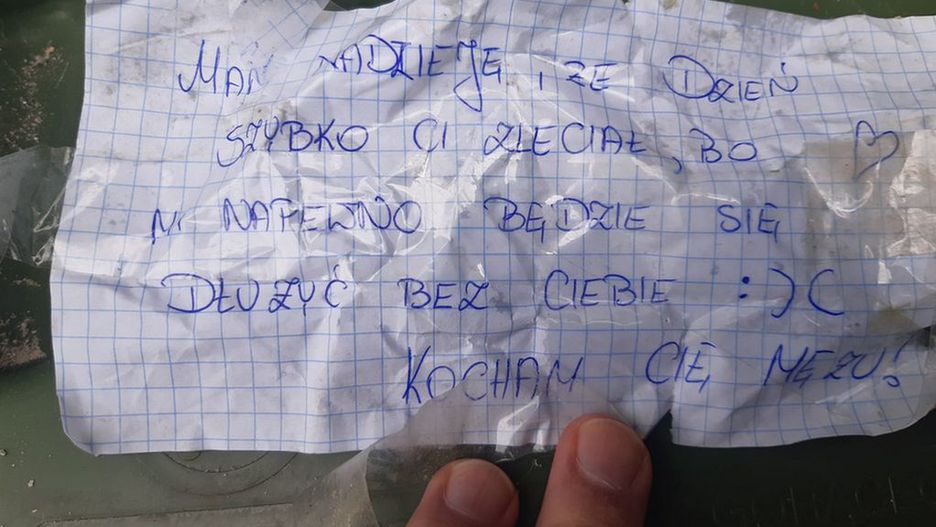 MAM NADZIEJĘ, ZE DZIEŃ
SZYBKO CI ZLECIAŁ, BO
NAPEWNO BĘDZIE SIĘ
DŁUŻYĆ BEZ CIEBIE :)(
KOCHAM CIĘ MĘZU!